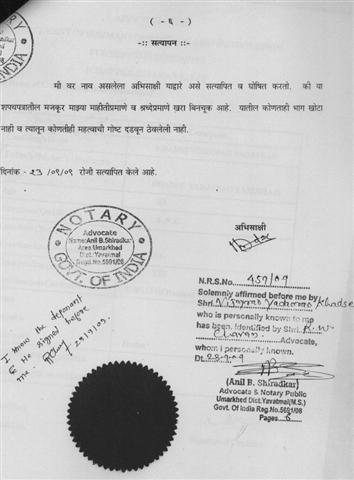 ( - ६ - )
-:: सत्यापन ::-
मी वर नाव असलेला अभिसाक्षी याद्वारे असे सत्यापित व घोषित करतो. की या
शपथपत्रातील मजकूर माझ्या माहीतीप्रमाणे व श्रध्देप्रमाणे खरा बिनचूक आहे. यातील कोणताही भाग खोटा
नाही व त्यातून कोणतीही महत्वाची गोष्ट दडवून ठेवलेली नाही.
दिनांक - २३ /०९/०९ रोजी सत्यापित केले आहे.
अभिसाक्षी
NOTARY
Advocate
Name:Anil B.Shiradkar
Area:Umarkhed
Dist.Yavatmal
Regd.No.5691/08
GOVT. OF INDIA
N.R.S.No. 459/09
Solemnly affirmed before me by
Shri. Vijayrao Yadavrao Khadse
who is personally known to me
has been. Identified by Shri.
Advocate,
whom I personally known.
Dt. 23-9-09
I know the deponent
& He signed before
me.
23/9/09.
(Anil B. Shiradkar)
Advocate & Notary Public
Umarkhed Dist.Yavatmal(M.S.)
Govt. Of India Reg.No.5691/08
Pages 6